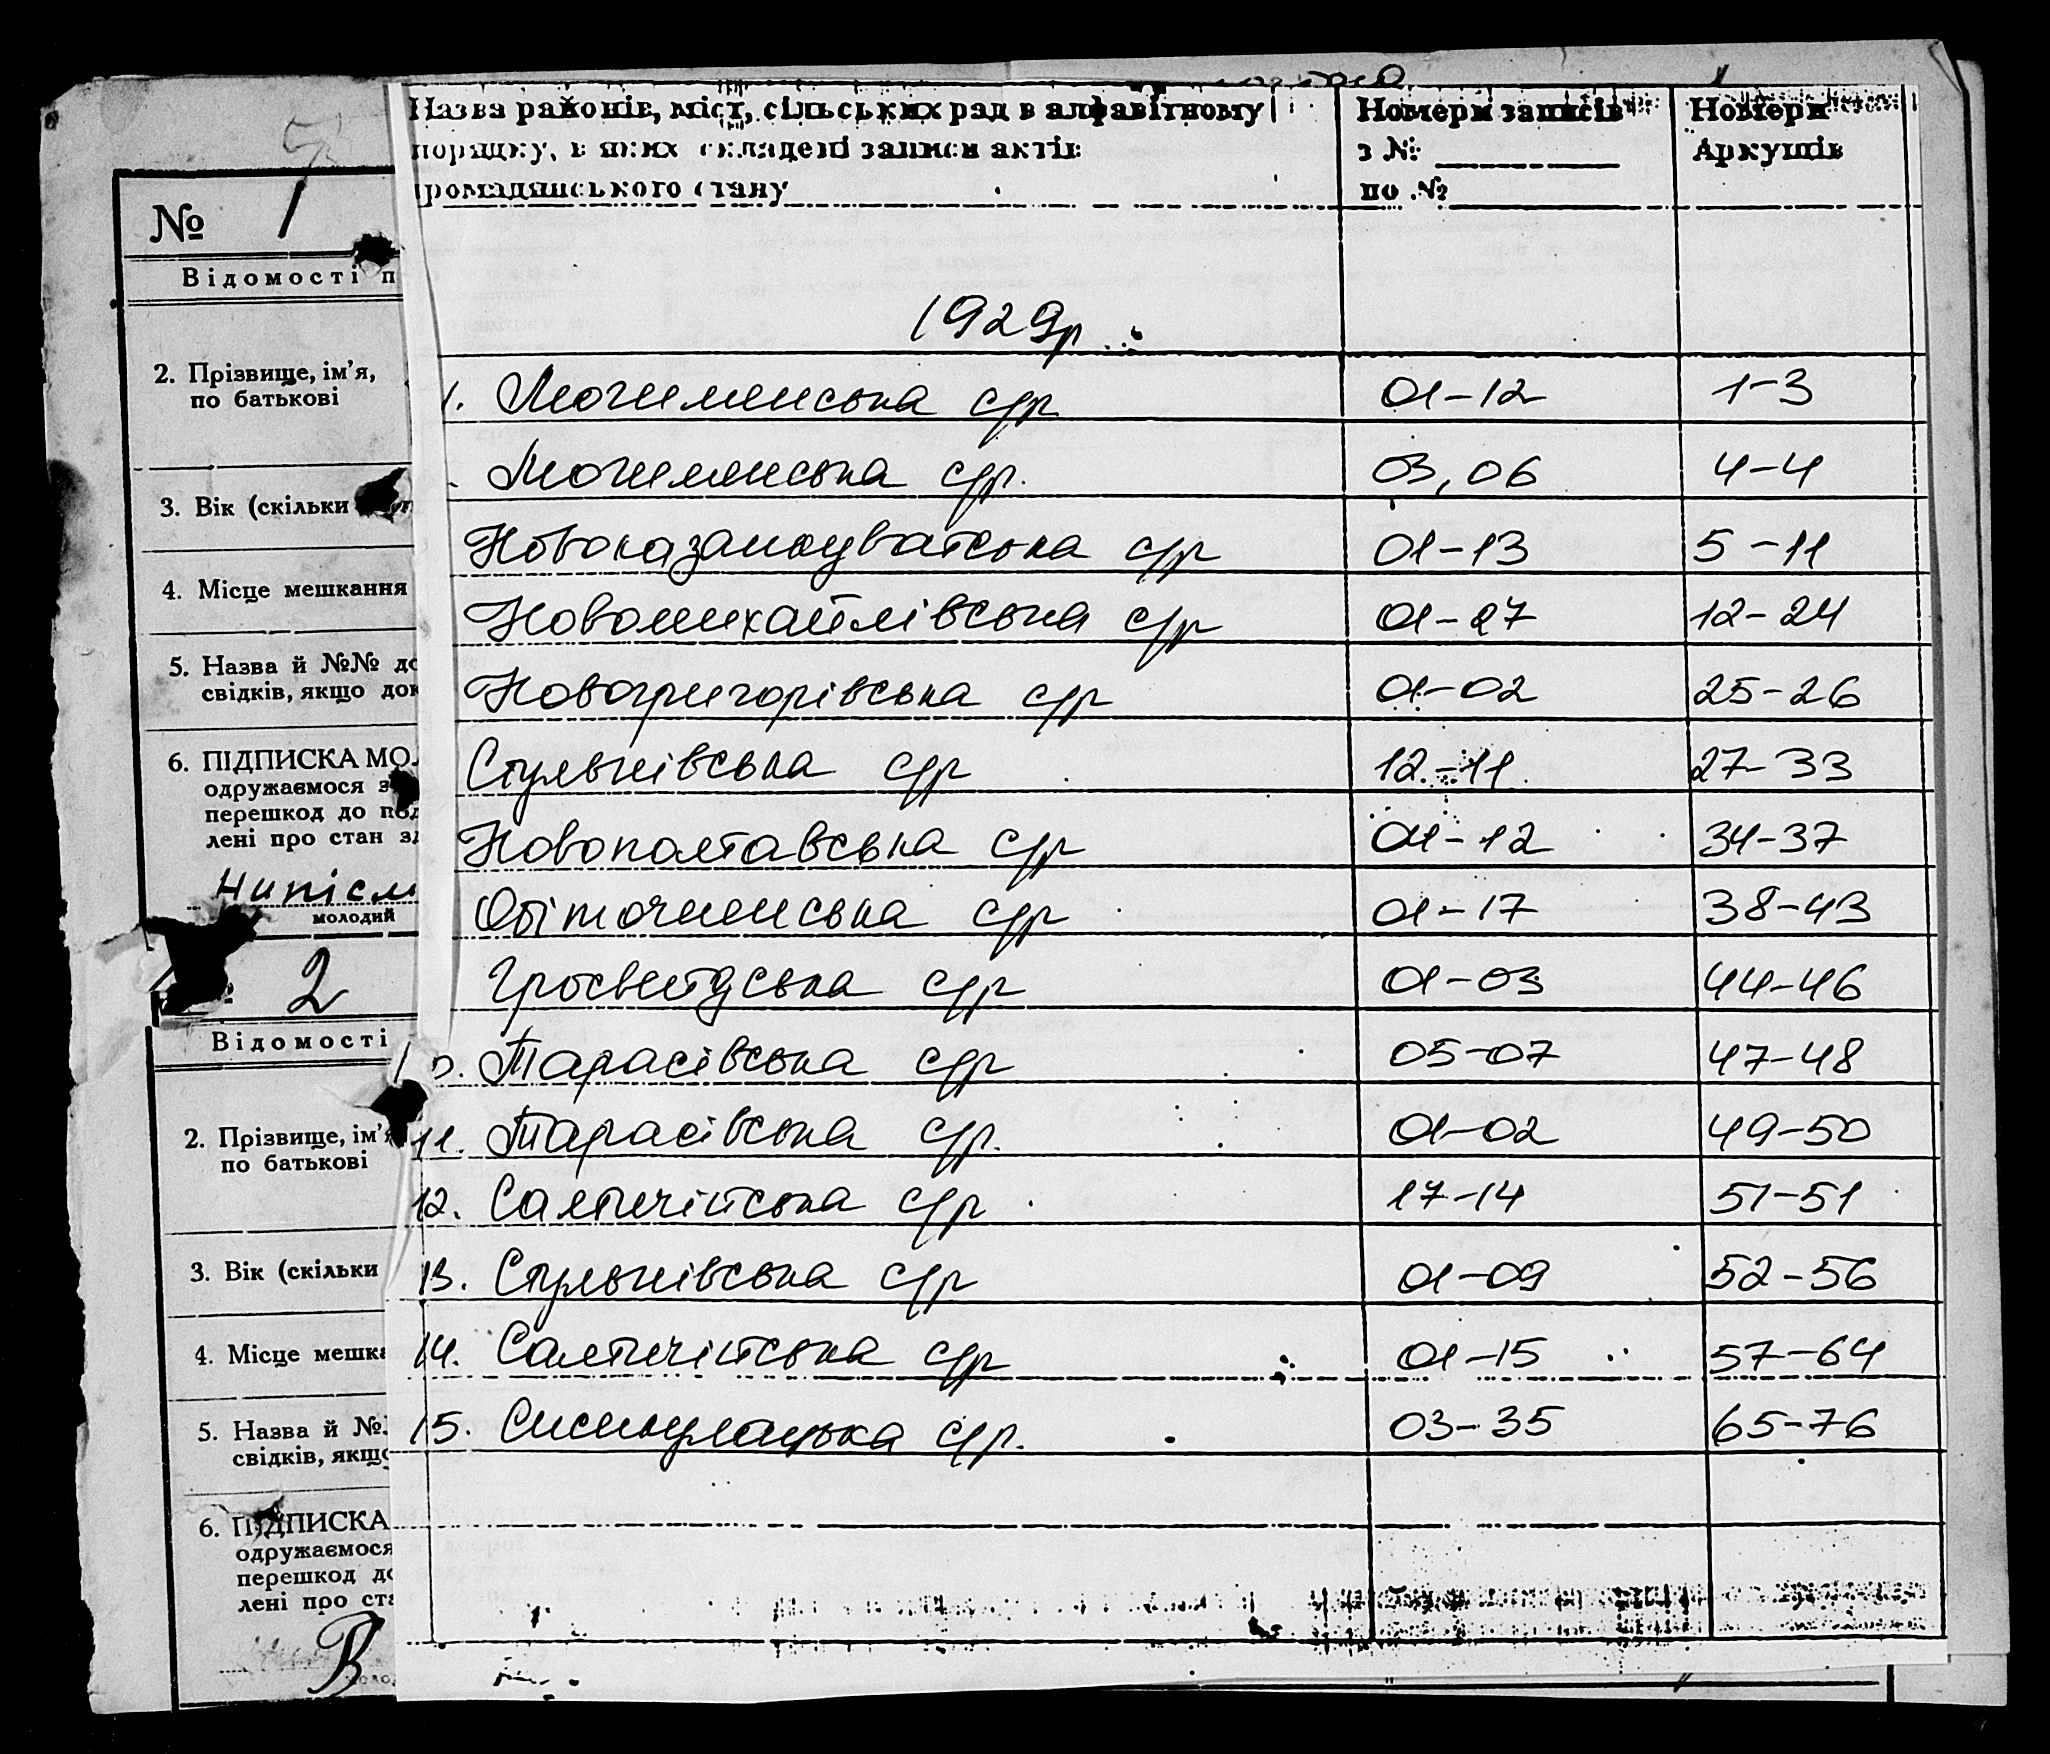 Назва районів, міст, сільських рад в алфавітному
порядку, в яких складені записи актів
громадянського стану
Номери записів
з №
по №
Номери
Аркушів
1929р.
1. Могилянська с/р 01-12 1-3
Могилянська с/р. 03, 06 4-4
Новоказанкуватська с/р 01-13 5-11
Новомихайлівська с/р 01-27 12-24
Новогригорівська с/р 01-02 25-26
Стульнівська с/р 12-11 27-33
Новополтавська с/р 01-12 34-37
Обіточненська с/р 01-17 38-43
с/р 01-03 44-46
10. Тарасівська с/р 05-07 47-48
11. Тарасівська с/р. 01-02 49-50
12. Салтичійська с/р 17-14 51-51
13. Стульнівська с/р 01-09 52-56
14. Салтичійська с/р 01-15 57-64
15. с/р. 03-35 65-76
№ 1
Відомості п
2. Прізвище, ім'я,
по батькові
3. Вік (скільки
4. Місце мешкання
5. Назва й №№ до
свідків, якщо док
6. ПІДПИСКА МОЛ
одружаємося з
перешкод до под
лені про стан зд
Нипісм
молодий
2
Відомості
2. Прізвище, ім'я
по батькові
3. Вік (скільки
4. Місце мешка
5. Назва й №
свідків, якщо
6. ПІДПИСКА
одружаємося
перешкод до
лені про ста